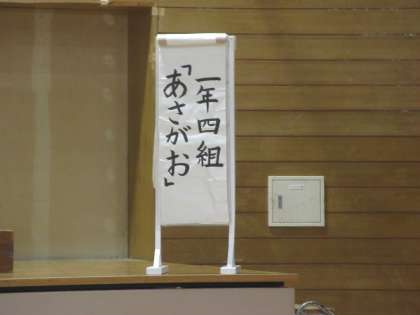 一年四組
「あさがお」